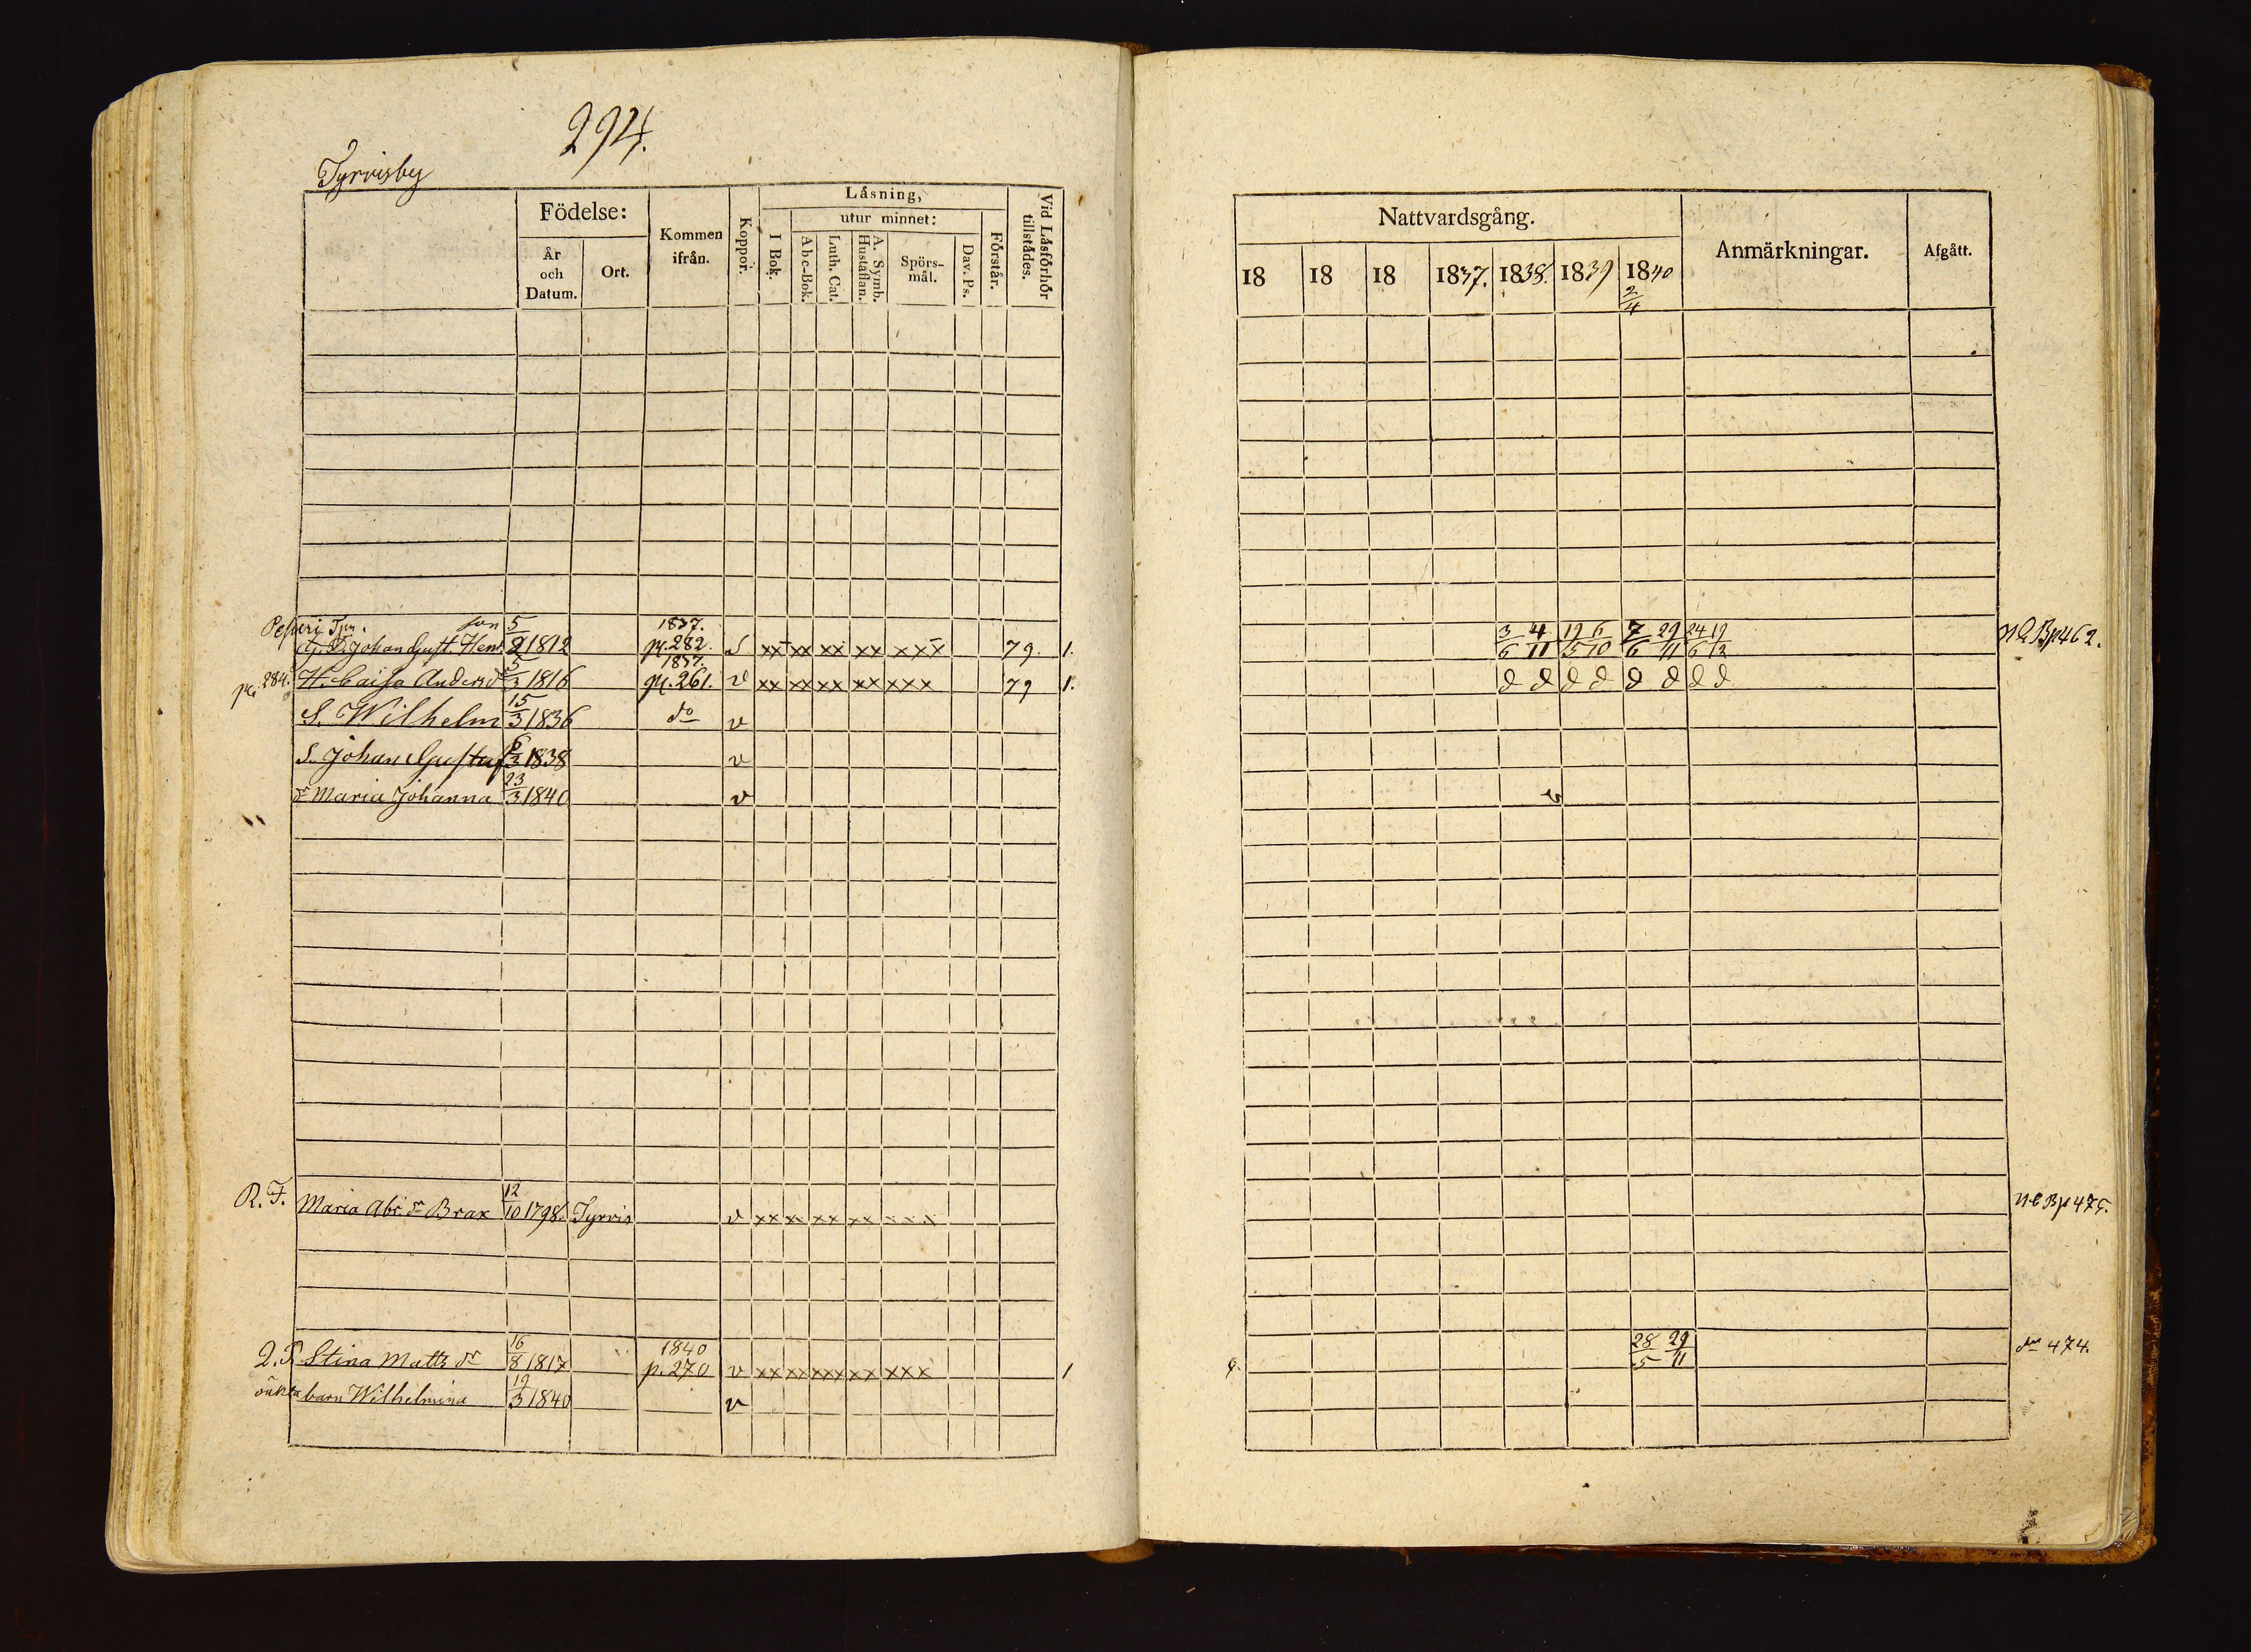 294.
Tyrvisby
Födelse:
År och Datum.
Ort.
Kommen ifrån.
Koppor.
Låsning,
I Bok.
utur minnet:
Abc-Bok.
Luth. Cat.
A. Symb. Hustaflan.
Spörs-mål.
Dav. Ps.
Förstår.
Vid Låsförhör tillstådes.
Johan Gust. Hen son 5/2 1812 1837. p. 282. xx xx xx xx xxx 79. 1.
p. 284. H. Caisa Anders dr 5/3 1816 1837. p. 261. v xx xx xx xx xxx 79 1.
S. Wilhelm 15/3 1836 do v
S. Johan Gustaf 6/3 1838 v
dr Maria Johanna 23/3 1840 v
R. F. Maria Abr. dr Brax 12/10 1798. Tyrvis v xx xx xx xx xxx
Stina Matts dr 16/8 1817 1840 p. 270 v xx xx xx xx xxx 1
oäkta barn Wilhelmina 19/3 1840 v
Nattvardsgång.
Anmärkningar.
Afgått.
18 18 18 1837. 1838. 1839 1840
2/4
3/6 4/11 19/5 6/10 7/6 29/11 24/6 19/12 N C B p 462.
d d d d d d d d
N C B p 475.
28/5 29/11 do 474.